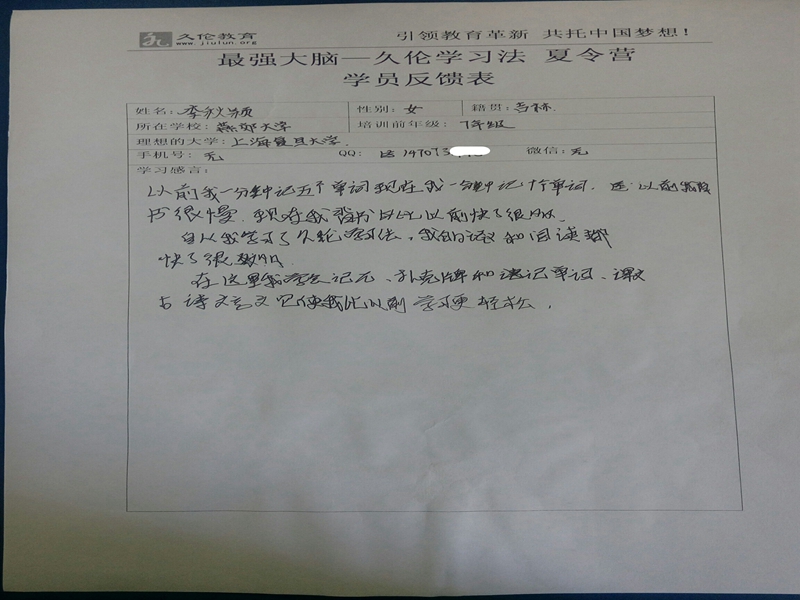 久伦教育
www.jiulun.org
引领教育革新 共托中国梦想!
最强大脑—久伦学习法 夏令营
学员反馈表
姓名: 李秋颖 性别: 女 籍贯: 吉林
所在学校: 燕郊大学 培训前年级: 7年级
理想的大学: 上海复旦大学.
手机号: 无 QQ: 147073 微信: 无
学习感言:
以前我一分钟记五个单词现在我一分钟记十个单词. 以前我背
书很慢. 现在我背书比以前快了很多.
自从我学了久伦学习法, 我的 和阅读都
快了很多.
在这里我学会记 、扑克牌和速记单词、课文
古诗文言文它使我比以前学 更轻松.